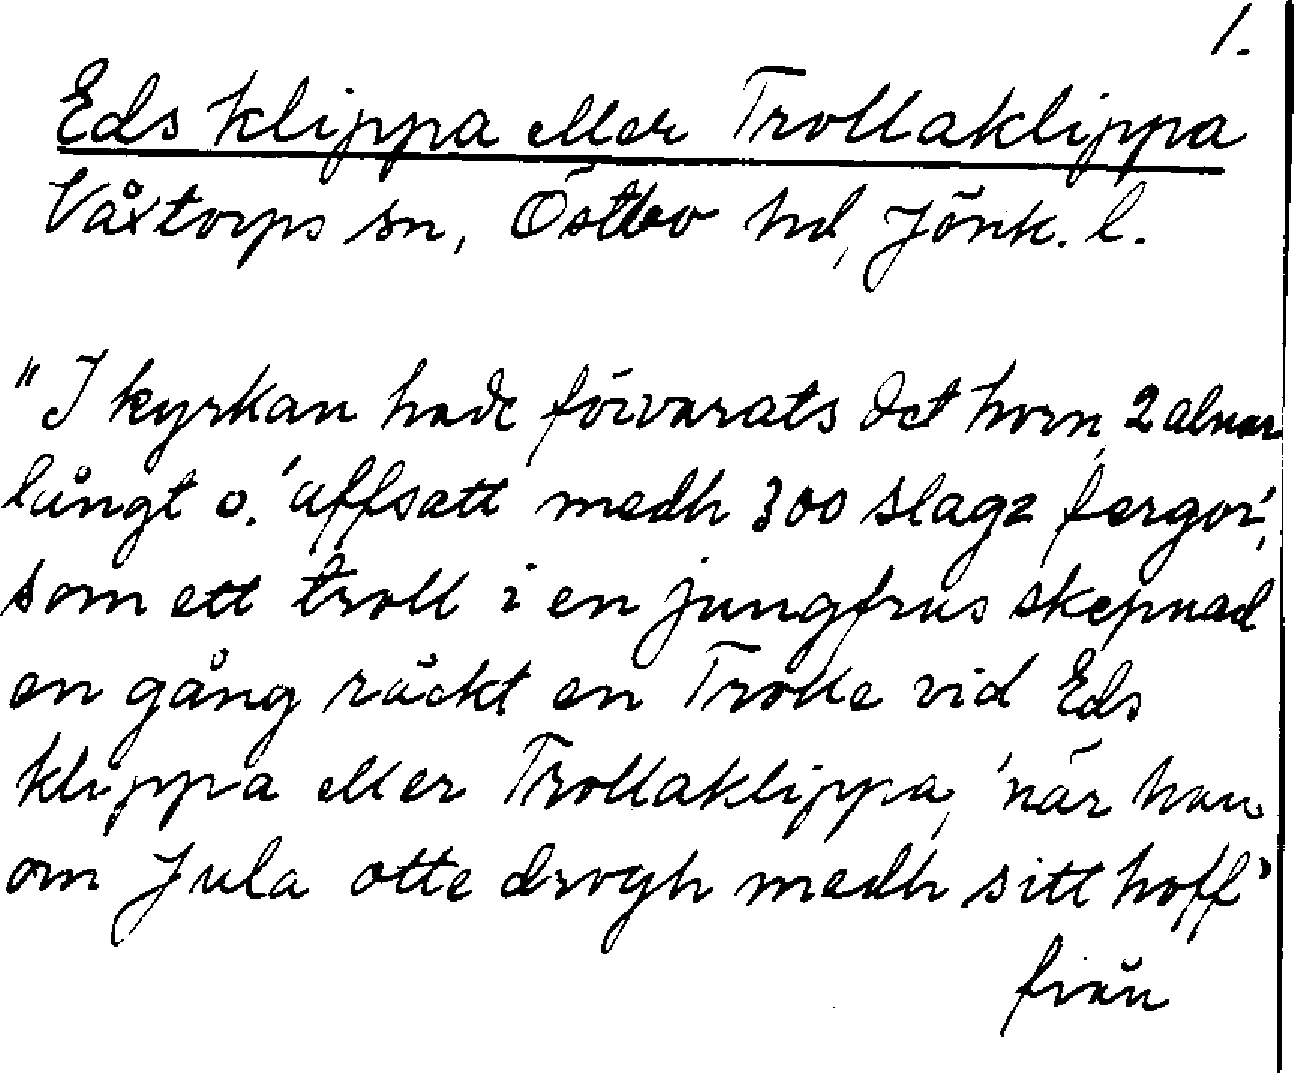 1.
Eds klippa eller Trollaklippa
Våxtorps sn, Östbo hd, Jönk. l.
"I kyrkan hade förvarats det horn, 2 alnar
långt o. 'uffsatt medh 300 slagz fergor',
som ett troll i en jungfrus skepnad
en gång räckt en Trolle vid Eds
klippa eller Trollaklippa, 'när han
om Jula otte drogh medh sitt hoff'
från